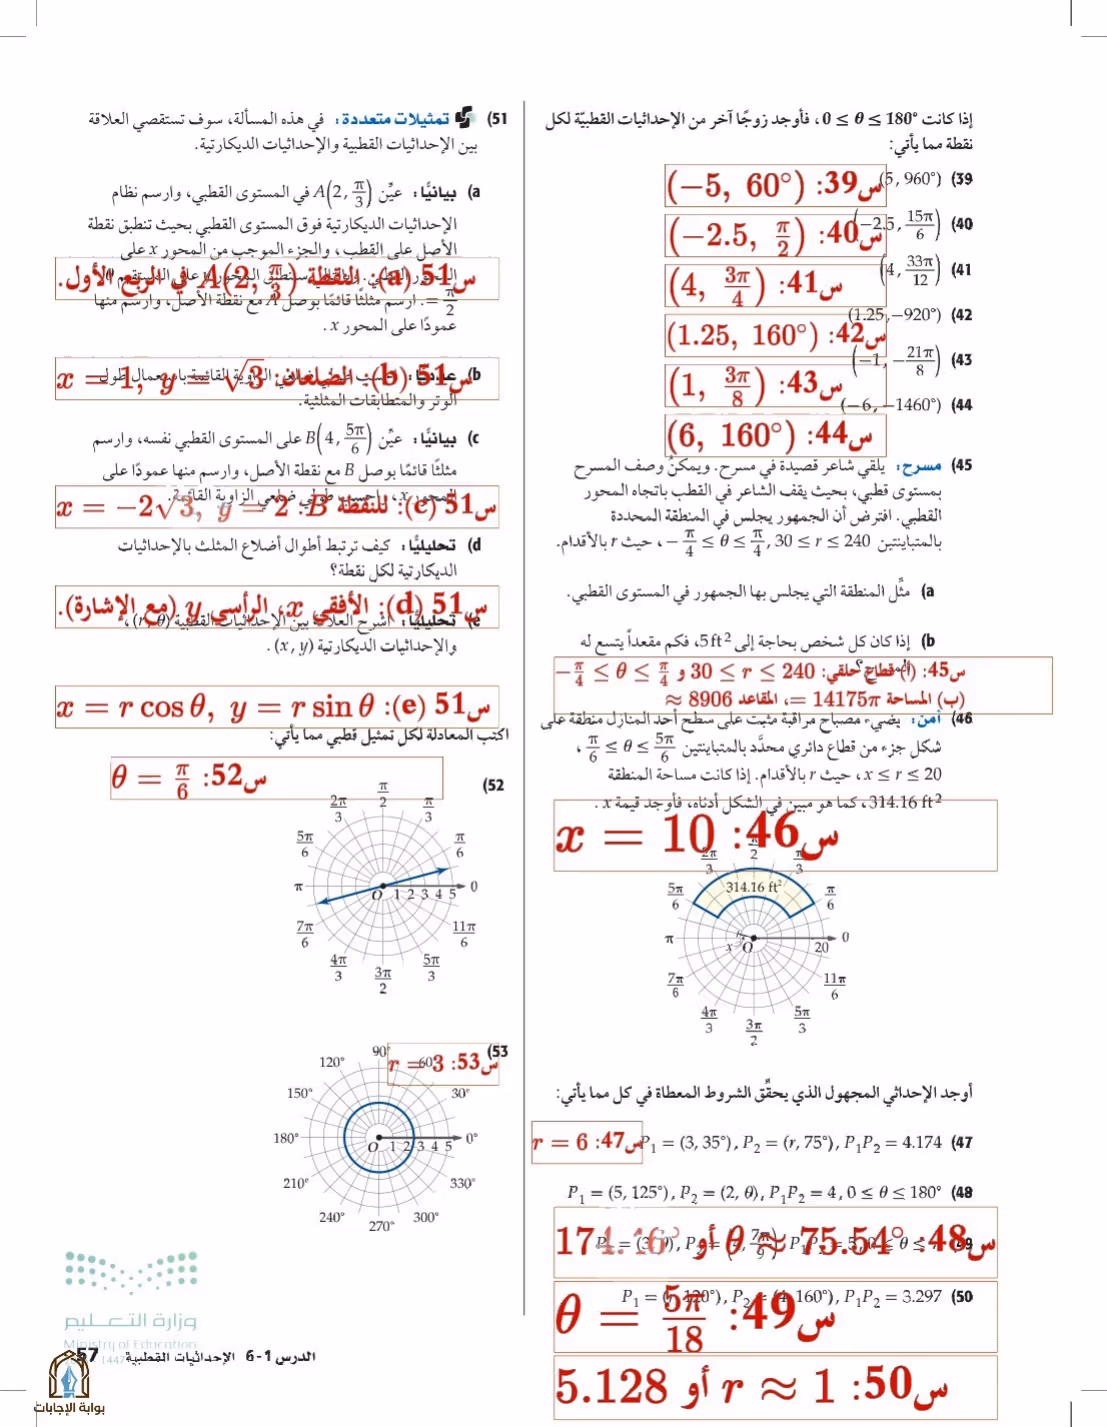 إذا كانت 0 ≤ θ ≤ 180°، فأوجد زوجًا آخر من الإحداثيات القطبيّة لكل
نقطة مما يأتي:
39) (5, 960°)
س39: (−5, 60°)
40) (−2.5, 15π/6)
س40: (−2.5, π/2)
41) (4, 33π/12)
س41: (4, 3π/4)
42) (1.25, −920°)
س42: (1.25, 160°)
43) (−1, −21π/8)
س43: (1, 3π/8)
44) (−6, −1460°)
س44: (6, 160°)
45) مسرح: يلقي شاعر قصيدة في مسرح. ويمكن وصف المسرح
بمستوى قطبي، بحيث يقف الشاعر في القطب باتجاه المحور
القطبي. افترض أن الجمهور يجلس في المنطقة المحددة
بالمتباينتين −π/4 ≤ θ ≤ π/4, 30 ≤ r ≤ 240، حيث r بالأقدام.
a) مثّل المنطقة التي يجلس بها الجمهور في المستوى القطبي.
b) إذا كان كل شخص بحاجة إلى 5 ft²، فكم مقعداً يتسع له
س45: (أ) قطاع حلقي: 30 ≤ r ≤ 240 و −π/4 ≤ θ ≤ π/4
(ب) المساحة = 14175π، المقاعد ≈ 8906
46) أمن: يضيء مصباح مراقبة مثبت على سطح أحد المنازل منطقة على
شكل جزء من قطاع دائري محدَّد بالمتباينتين π/6 ≤ θ ≤ 5π/6،
x ≤ r ≤ 20، حيث r بالأقدام. إذا كانت مساحة المنطقة
314.16 ft²، كما هو مبين في الشكل أدناه، فأوجد قيمة x.
س46: x = 10
2π/3 π/2 π/3
5π/6 314.16 ft² π/6
π x O 20 0
7π/6 11π/6
4π/3 3π/2 5π/3
أوجد الإحداثي المجهول الذي يحقِّق الشروط المعطاة في كل مما يأتي:
47) P₁ = (3, 35°), P₂ = (r, 75°), P₁P₂ = 4.174
س47: r = 6
48) P₁ = (5, 125°), P₂ = (2, θ), P₁P₂ = 4, 0 ≤ θ ≤ 180°
س48: θ ≈ 75.54° أو 174.46°
49) P₁ = (3, θ), P₂ = (4, 7π/9), P₁P₂ = 5, 0 ≤ θ ≤
س49: θ = 5π/18
50) P₁ = (r, 120°), P₂ = (4, 160°), P₁P₂ = 3.297
س50: r ≈ 1 أو 5.128
51) تمثيلات متعددة: في هذه المسألة، سوف تستقصي العلاقة
بين الإحداثيات القطبية والإحداثيات الديكارتية.
a) بيانيًّا: عيِّن A(2, π/3) في المستوى القطبي، وارسم نظام
الإحداثيات الديكارتية فوق المستوى القطبي بحيث تنطبق نقطة
الأصل على القطب، والجزء الموجب من المحور x على
س51 (a): النقطة A(2, π/3) في الربع الأول.
π/2 =. ارسم مثلثًا قائمًا بوصل A مع نقطة الأصل، وارسم منها
عمودًا على المحور x.
س51 (b): الضلعان: x = 1, y = √3
الوتر والمتطابقات المثلثية.
c) بيانيًّا: عيِّن B(4, 5π/6) على المستوى القطبي نفسه، وارسم
مثلثًا قائمًا بوصل B مع نقطة الأصل، وارسم منها عمودًا على
المحور x، واحسب طولي ضلعي الزاوية القائمة.
س51 (c): للنقطة B: x = −2√3, y = 2
d) تحليليًّا: كيف ترتبط أطوال أضلاع المثلث بالإحداثيات
الديكارتية لكل نقطة؟
س51 (d): الأفقي x، الرأسي y (مع الإشارة).
e) تحليليًّا: اشرح العلاقة بين الإحداثيات القطبية (r, θ)،
والإحداثيات الديكارتية (x, y).
س51 (e): x = r cos θ, y = r sin θ
اكتب المعادلة لكل تمثيل قطبي مما يأتي:
52)
س52: θ = π/6
2π/3 π/2 π/3
5π/6 π/6
π O 1 2 3 4 5 0
7π/6 11π/6
4π/3 3π/2 5π/3
53)
س53: r = 3
120° 90° 60°
150° 30°
180° O 1 2 3 4 5 0°
210° 330°
240° 270° 300°
وزارة التعليم
Ministry of Education
الدرس 1-6 الإحداثيات القطبية 57
بوابة الإجابات